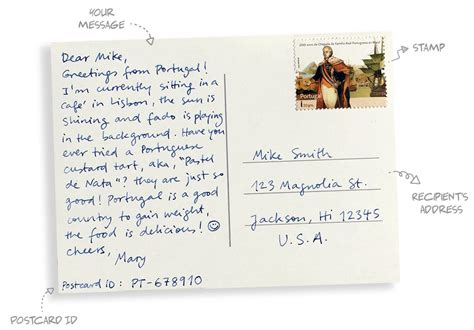 YOUR
MESSAGE
Dear Mike,
Greetings from Portugal!
I'm currently sitting in a
café in Lisbon, the sun is
shining and fado is playing
in the background. Have you
ever tried a Portuguese
custard tart, aka, "Pastel
de Nata"? they are just so
good! Portugal is a good
country to gain weight,
the food is delicious! ☺
cheers,
Mary
Postcard ID: PT-678910
POSTCARD ID
Portugal
STAMP
Mike Smith
123 Magnolia St.
Jackson, Hi 12345
U.S.A.
RECIPIENTS
ADDRESS